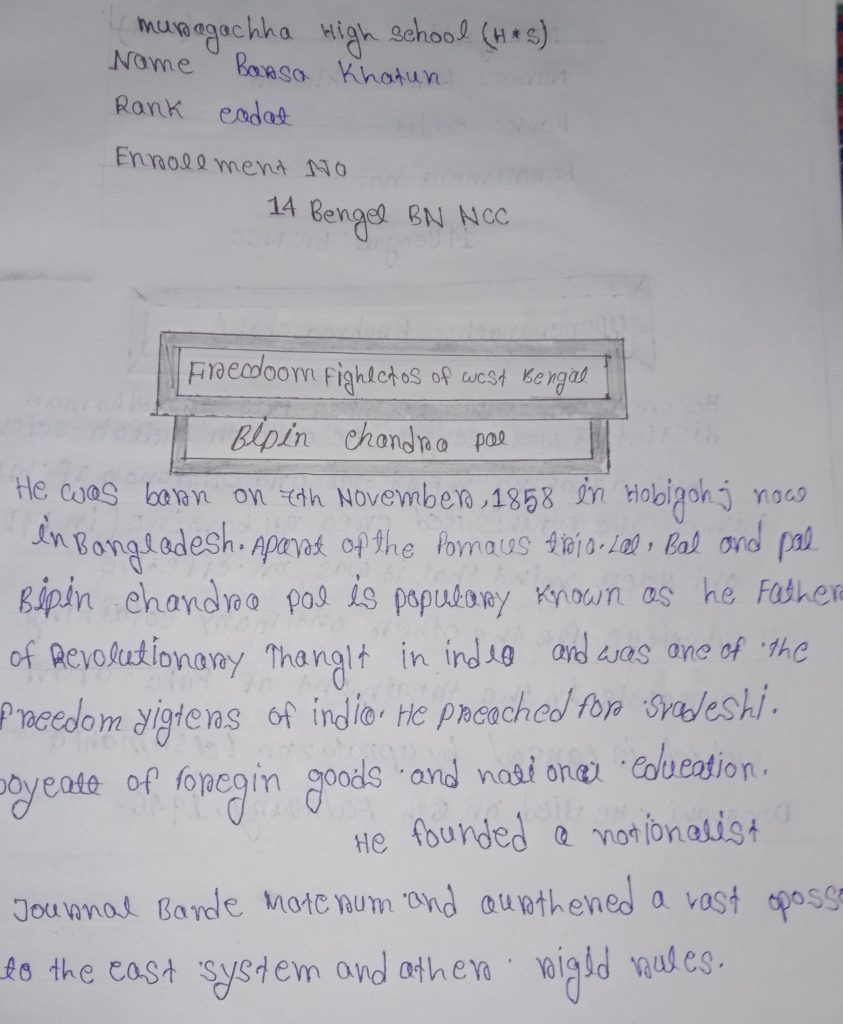 muragachha High School (H*S)
Name Barsa Khatun
Rank cadat
Enrollment No
14 Bengel BN NCC
Freedoom Fighectos of west Bengal
Bipin chandra pal
He was barn on 7th November, 1858 in Hobigohj now
in Bangladesh. Apart of the Pomaus trio. Lal, Bal and pal
Bipin chandra pal is populary known as he Father
of Revolutionary Thanglt in india and was one of the
freedom yigters of india. He preached for sradeshi.
boyeatt of foregin goods and national education.
He founded a nationalist
Journal Bande Materum and aurthened a vast oposs
to the cast system and athers rigld rules.